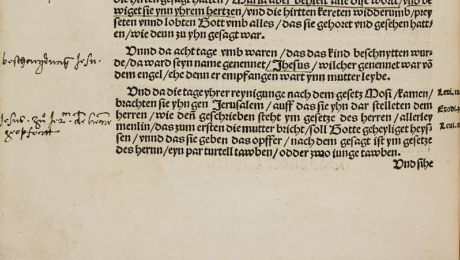 die hirten gesagt hatten / Maria aber behielt alle dise wort / vnd be
wiget sie ynn yhrem hertzen / vnd die hirtten kereten widderumb / prey
seten vnnd lobten Gott vmb alles / das sie gehoret vnd gesehen hatt/
en / wie denn zu yhn gesagt war.
Vnnd da acht tage vmb waren / das das kind beschnytten wur-
de / da ward seyn name genennet / Jhesus / wilcher genennet war võ
dem engel / ehe denn er empfangen wart ynn mutter leybe.
beschneydung Jesu.
Vnd da die tage yhrer reynigunge nach dem gesetz Mosi / kamen /
Leui.
brachten sie yhn gen Jerusalem / auff das sie yhn dar stelleten dem
herren / wie deñ geschrieben steht ym gesetze des herren / allerley
Exodi.
menlin / das zum ersten die mutter bricht / soll Gotte geheyliget heys-
Leui.
sen / vnnd das sie geben das opffer / nach dem gesagt ist ym gesetze
des herrn / eyn par turtell tawben / odder zwo iunge tawben.
Jesus
geopffertt
Vnd sihe